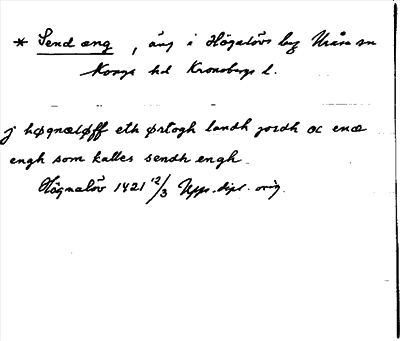 * Sendæng, äng i Högalövs by Uråsa sn
Konga hd Kronobergs l.
j høgnæløff eth ørtogh landh jordh oc enæ
engh som kalles sendh engh.
Högnalöv 1421 12/3 Upps. dipl. orig.